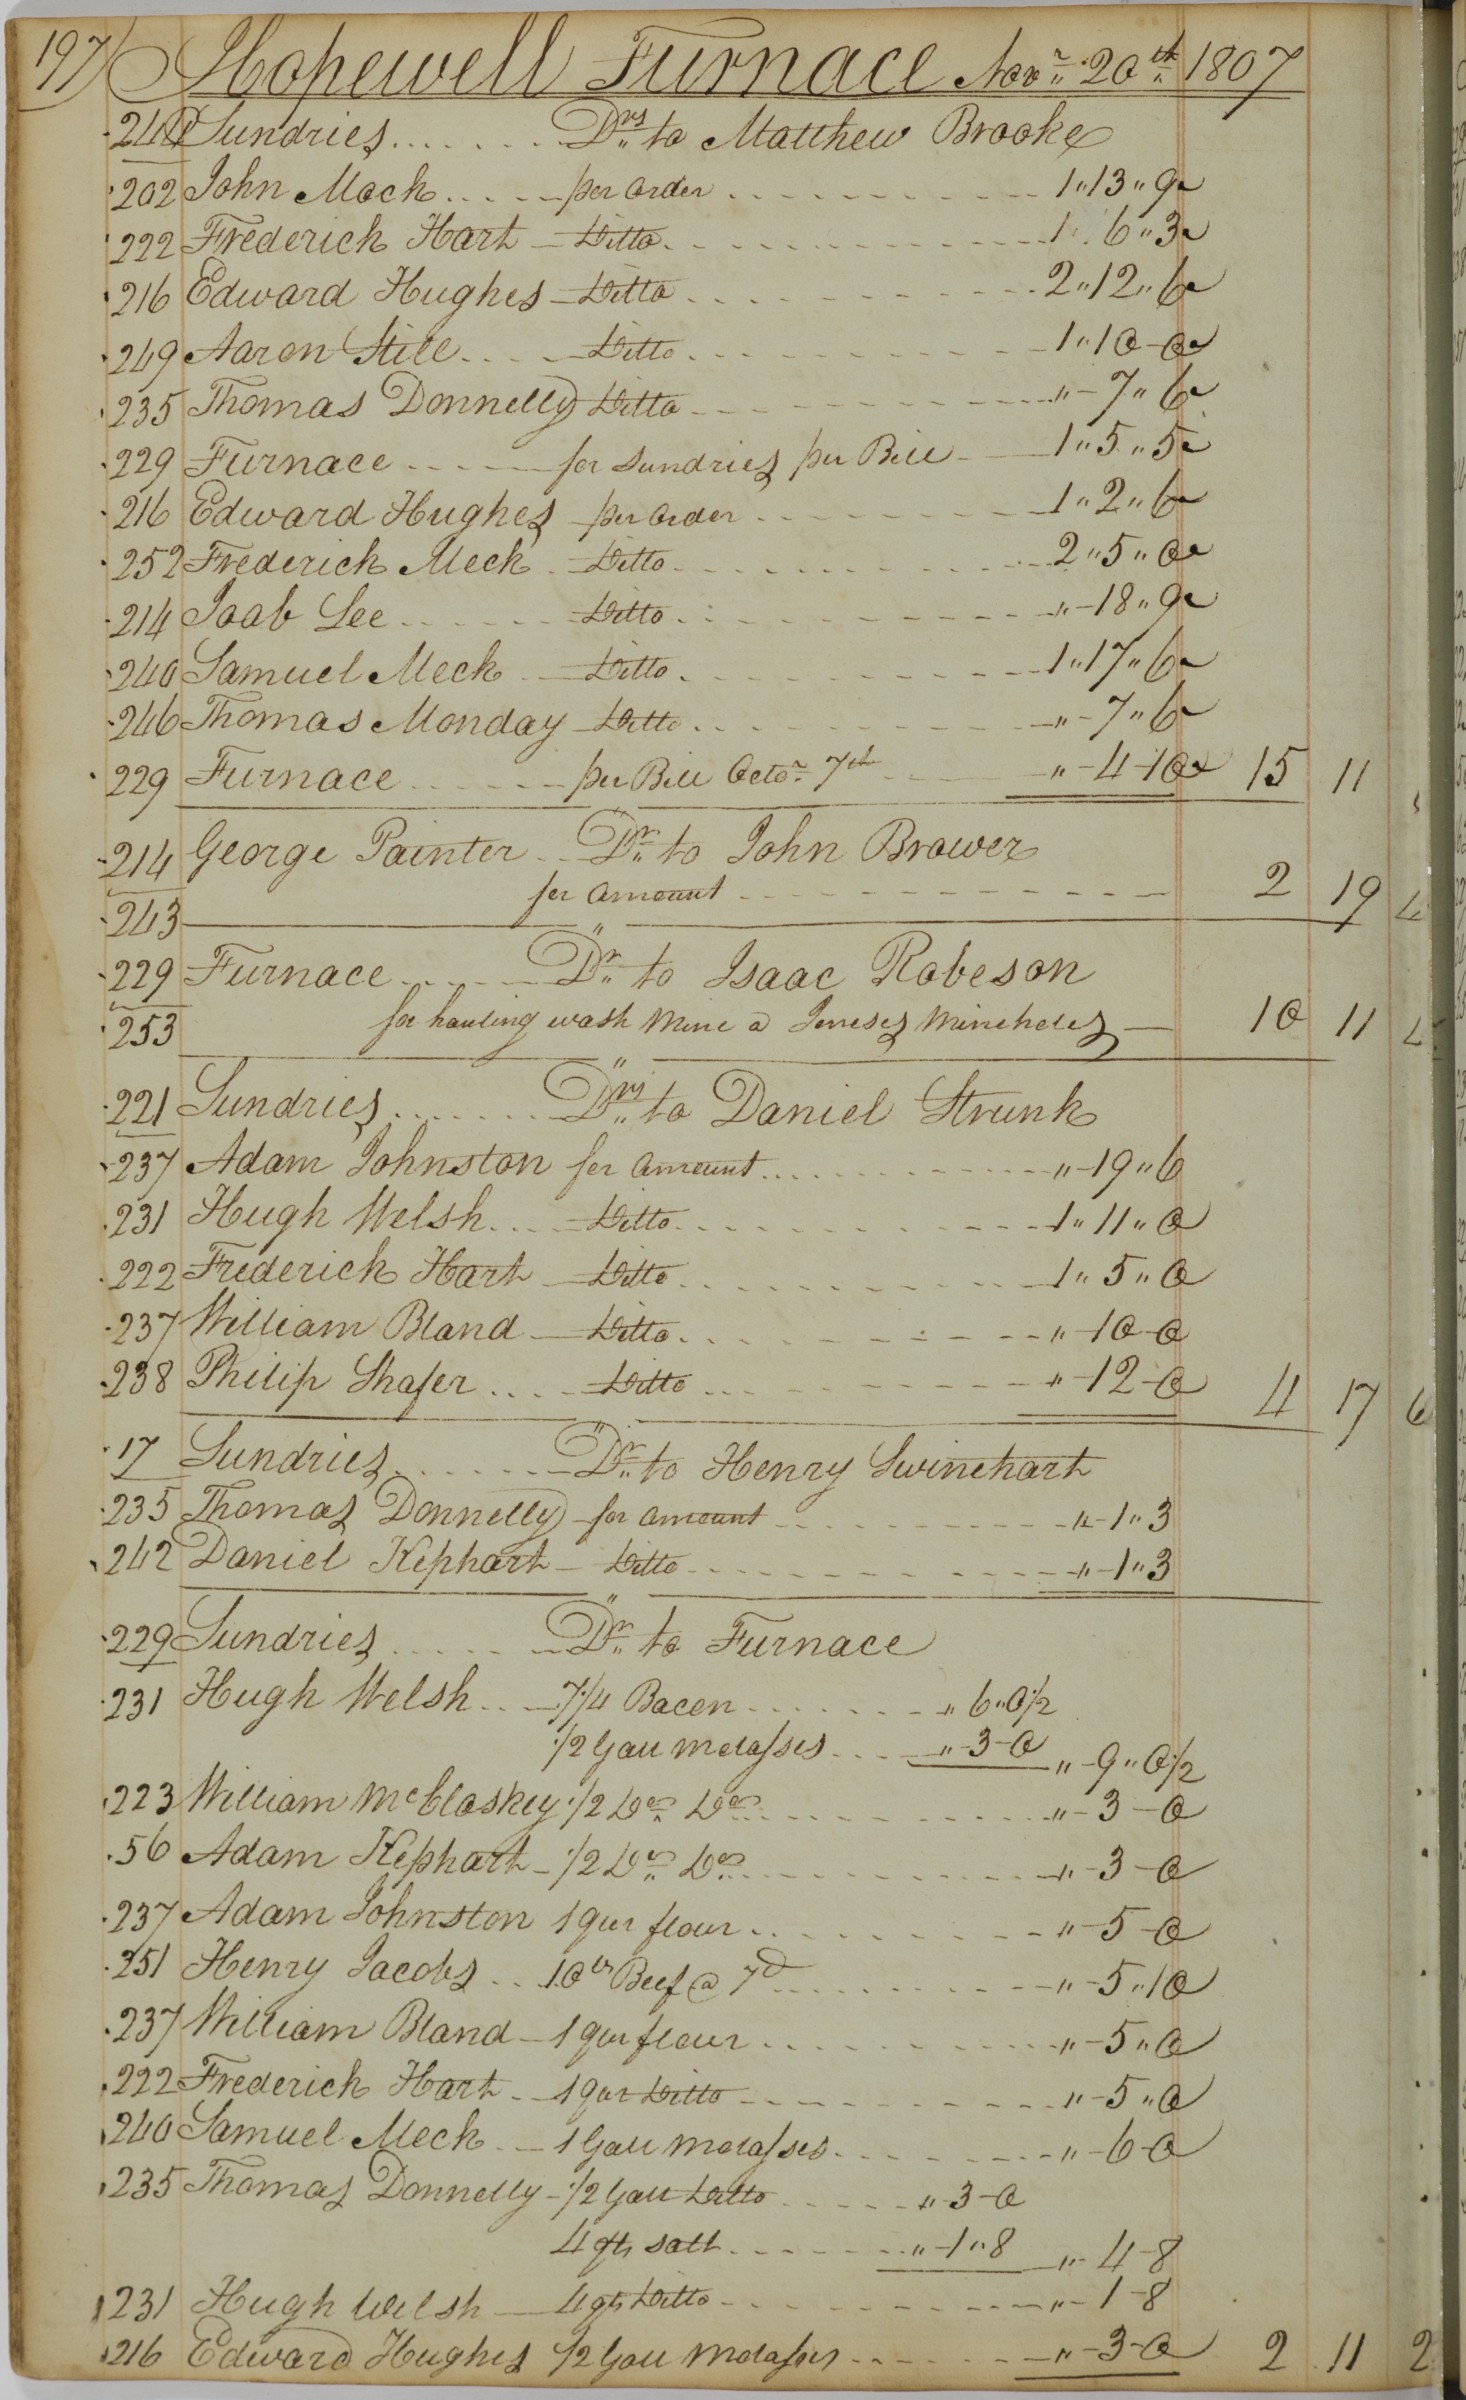 197 Hopewell Furnace Novr 20th 1807
Sundries Drs to Matthew Brooke
202 John Mock per order 1 " 13 " 9
222 Frederick Hart Ditto 1 " 6 " 3
216 Edward Hughes Ditto 2 " 12 " 6
249 Aaron Stile Ditto 1 " 10 - 0
235 Thomas Donnelly Ditto " - 7 " 6
229 Furnace for Sundries per Bill 1 " 5 " 5
216 Edward Hughes per order 1 " 2 " 6
252 Frederick Meck Ditto 2 " 5 " 0
214 Joab Lee Ditto " - 18 " 9
240 Samuel Meck Ditto 1 " 17 " 6
246 Thomas Monday Ditto " - 7 " 6
229 Furnace per Bill Octor 7th " - 4 - 10 15 11
214 George Painter Dr to John Brower
for amount 2 19 4
243
229 Furnace Dr to Isaac Robeson
253 for hauling wash mine a Joneses mineholes 10 11
221 Sundries Drs to Daniel Strunk
237 Adam Johnston for amount " - 19 " 6
231 Hugh Welsh Ditto 1 " 11 " 0
222 Frederick Hart Ditto 1 " 5 " 0
237 William Bland Ditto " - 10 - 0
238 Philip Shafer Ditto " - 12 - 0 4 17 6
17 Sundries Dr to Henry Swinehart
235 Thomas Donnelly for amount " - 1 " 3
242 Daniel Kephart Ditto " - 1 " 3
229 Sundries Dr to Furnace
231 Hugh Welsh 7 1/4 Bacon " 6 " 0 1/2
1/2 Gall molasses " - 3 - 0 " - 9 " 0 1/2
223 William McCloskey 1/2 Do Do " - 3 - 0
56 Adam Kephart 1/2 Do Do " - 3 - 0
237 Adam Johnston 1 qur flour " - 5 - 0
251 Henry Jacobs 10 lb Beef @ 7d " - 5 " 10
237 William Bland 1 qur flour " - 5 " 0
222 Frederick Hart 1 qur Ditto " - 5 " 0
240 Samuel Meck 1 Gall molasses " - 6 - 0
235 Thomas Donnelly 1/2 Gall Ditto " 3 - 0
4 qts salt " - 1 " 8 " - 4 - 8
231 Hugh Welsh 4 qts Ditto " - 1 - 8
216 Edward Hughes 1/2 Gall molasses " - 3 - 0 2 11 2